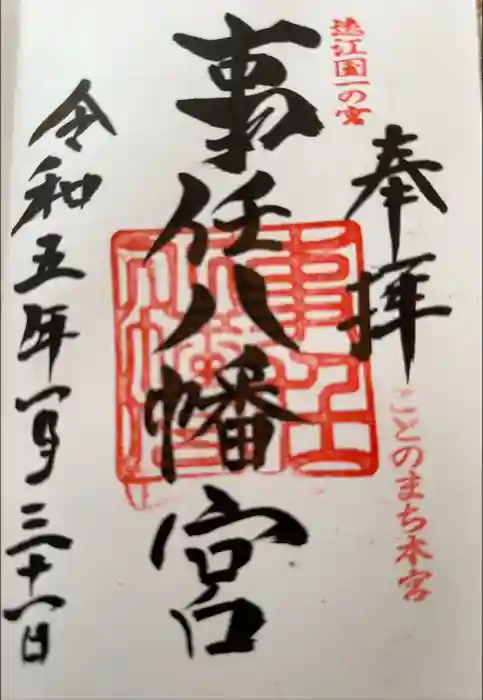 奉拝
遠江国一の宮
ことのまち本宮
事任八幡宮
令和五年一月三十一日